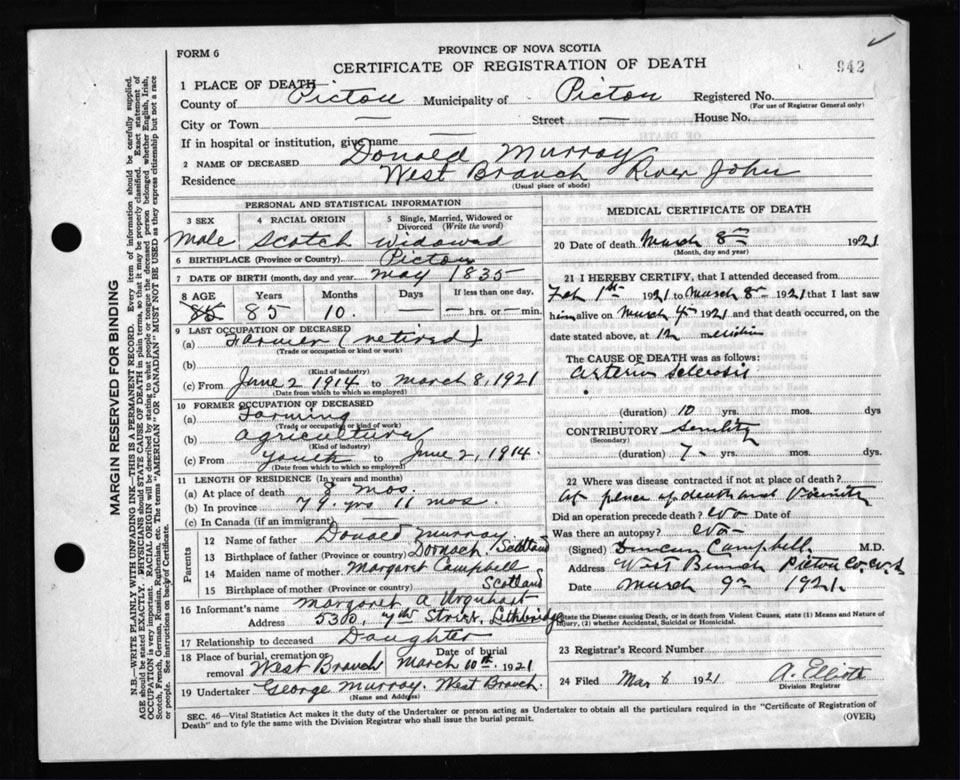 FORM 6
PROVINCE OF NOVA SCOTIA
CERTIFICATE OF REGISTRATION OF DEATH
942
1 PLACE OF DEATH—
County of Pictou Municipality of Pictou Registered No.
(For use of Registrar General only)
City or Town — Street — House No.
If in hospital or institution, give name —
2 NAME OF DECEASED Donald Murray
Residence West Branch River John
(Usual place of abode)
PERSONAL AND STATISTICAL INFORMATION
3 SEX 4 RACIAL ORIGIN 5 Single, Married, Widowed or Divorced (Write the word)
Male Scotch Widowed
6 BIRTHPLACE (Province or Country) Pictou
7 DATE OF BIRTH (month, day and year) May 1835
8 AGE Years Months Days If less than one day,
85 85 10. — — hrs. or — min.
9 LAST OCCUPATION OF DECEASED
(a) Farmer (retired)
(Trade or occupation or kind or work)
(b)
(Kind of industry)
(c) From June 2 1914 to March 8, 1921
(Date from which to which so employed)
10 FORMER OCCUPATION OF DECEASED
(a) Farming
(Trade or occupation or kind of work)
(b) Agricultural
(Kind of industry)
(c) From youth to June 2, 1914.
(Date from which to which so employed)
11 LENGTH OF RESIDENCE (In years and months)
(a) At place of death 8 mos.
(b) In province 79 yrs 11 mos.
(c) In Canada (if an immigrant)
Parents
12 Name of father Donald Murray
13 Birthplace of father (Province or country) Dornach, Scotland
14 Maiden name of mother Margaret Campbell
15 Birthplace of mother (Province or country) Scotland
16 Informant's name Margaret A Urquhart
Address 530, 7th Street, Lethbridge
17 Relationship to deceased Daughter
18 Place of burial, cremation or removal West Branch Date of burial March 10th 1921
19 Undertaker George Murray. West Branch.
(Name and Address)
MEDICAL CERTIFICATE OF DEATH
20 Date of death March 8th 1921
(Month, day and year)
21 I HEREBY CERTIFY, that I attended deceased from
Feb 1st 1921 to March 8 1921 that I last saw
him alive on March 4th 1921 and that death occurred, on the
date stated above, at 12
The CAUSE OF DEATH was as follows:
Arterio Sclerosis
(duration) 10 yrs. mos. dys
CONTRIBUTORY Senility
(Secondary)
(duration) 7 - yrs. mos. dys.
22 Where was disease contracted if not at place of death?
At place of death and Vicinity
Did an operation precede death? No Date of
Was there an autopsy? No
(Signed) Duncan Campbell M.D.
Address West Branch Pictou Co. N.S
Date March 9th 1921.
State the Disease causing Death, or in death from Violent Causes, state (1) Means and Nature of Injury, (2) whether Accidental, Suicidal or Homicidal.
23 Registrar's Record Number
24 Filed Mar 6 1921 A. Elliott
Division Registrar
SEC. 46—Vital Statistics Act makes it the duty of the Undertaker or person acting as Undertaker to obtain all the particulars required in the "Certificate of Registration of
Death" and to fyle the same with the Division Registrar who shall issue the burial permit.
(OVER)
MARGIN RESERVED FOR BINDING
N.B.—WRITE PLAINLY WITH UNFADING INK—THIS IS A PERMANENT RECORD. Every item of information should be carefully supplied.
AGE should be stated EXACTLY. PHYSICIANS should STATE CAUSE OF DEATH in plain terms, so that it may be properly classified. Exact statement of
OCCUPATION is very important. RACIAL ORIGIN will be described by stating to what people or tongue the deceased person belonged whether English, Irish,
Scotch, French, German, Russian, Ruthenian, etc. The terms "AMERICAN" OR "CANADIAN" MUST NOT BE USED as they express citizenship but not a race
or people. See instructions on back of Certificate.